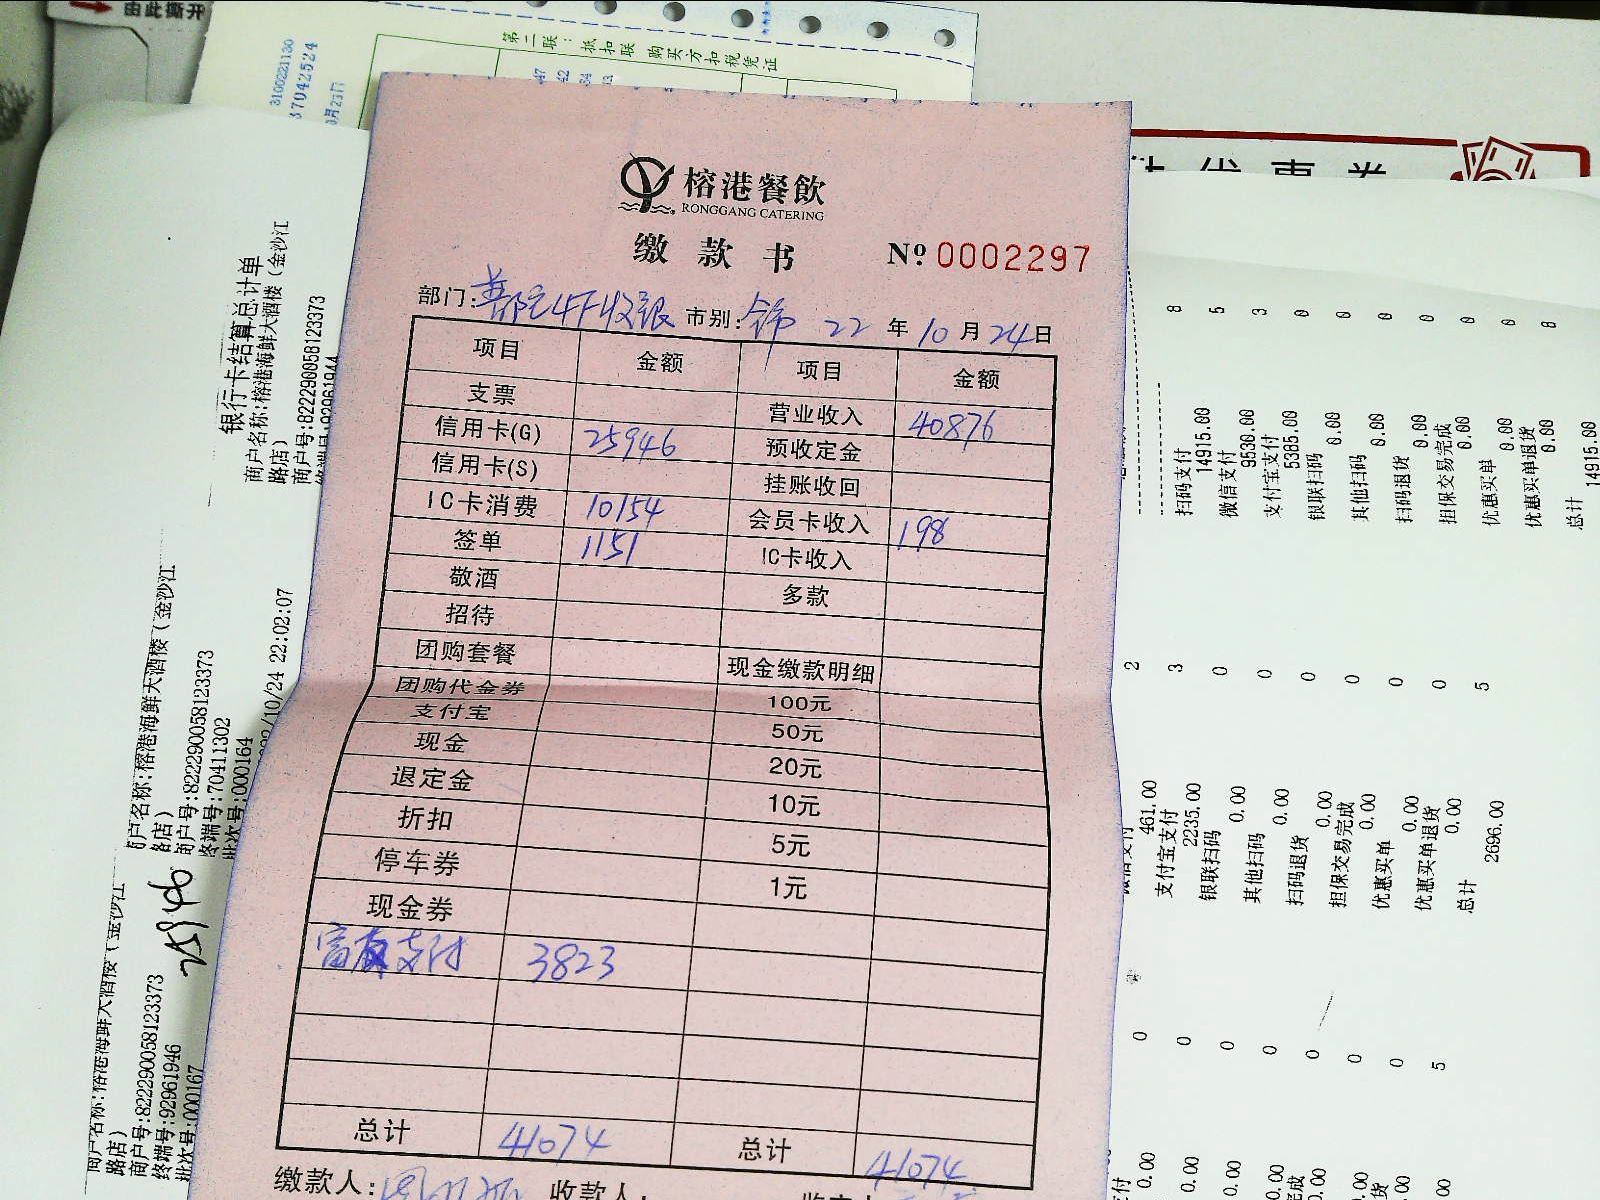 由此撕开
第二联：抵扣联 购买方扣税凭证
3100221130
37042524
榕港餐飲
RONGGANG CATERING
缴款书 № 0002297
部门: 市别: 22 年 10 月 24 日
项目 金额 项目 金额
支票 营业收入 40876
信用卡(G) 25946 预收定金
信用卡(S) 挂账收回
IC卡消费 10154 会员卡收入 198
签单 1151 IC卡收入
敬酒 多款
招待
团购套餐 现金缴款明细
团购代金券 100元
支付宝 50元
现金 20元
退定金 10元
折扣 5元
停车券 1元
现金券
支付 3823
总计 41074 总计 41074
缴款人: 收款人:
银行卡结算总计单
商户名称:榕港海鲜大酒楼(金沙江
路店)
商户号:822290058123373
终端号:92961944
户名称:榕港海鲜大酒楼(金沙江
路店)
商户号:822290058123373
终端号:70411302
批次号:000164
/10/24 22:02:07
25946
商户名称:榕港海鲜大酒楼(金沙江
路店)
商户号:822290058123373
终端号:92961946
批次号:000167
扫码支付 8
14915.00
微信支付 5
9530.00
支付宝支付 3
5385.00
银联扫码 0
0.00
其他扫码 0
0.00
扫码退货 0
0.00
担保交易完成 0
0.00
优惠买单 0
0.00
优惠买单退货 0
0.00
总计 8
14915.00
微信支付 2
461.00
支付宝支付 3
2235.00
银联扫码 0
0.00
其他扫码 0
0.00
扫码退货 0
0.00
担保交易完成 0
0.00
优惠买单 0
0.00
优惠买单退货 0
0.00
总计 5
2696.00